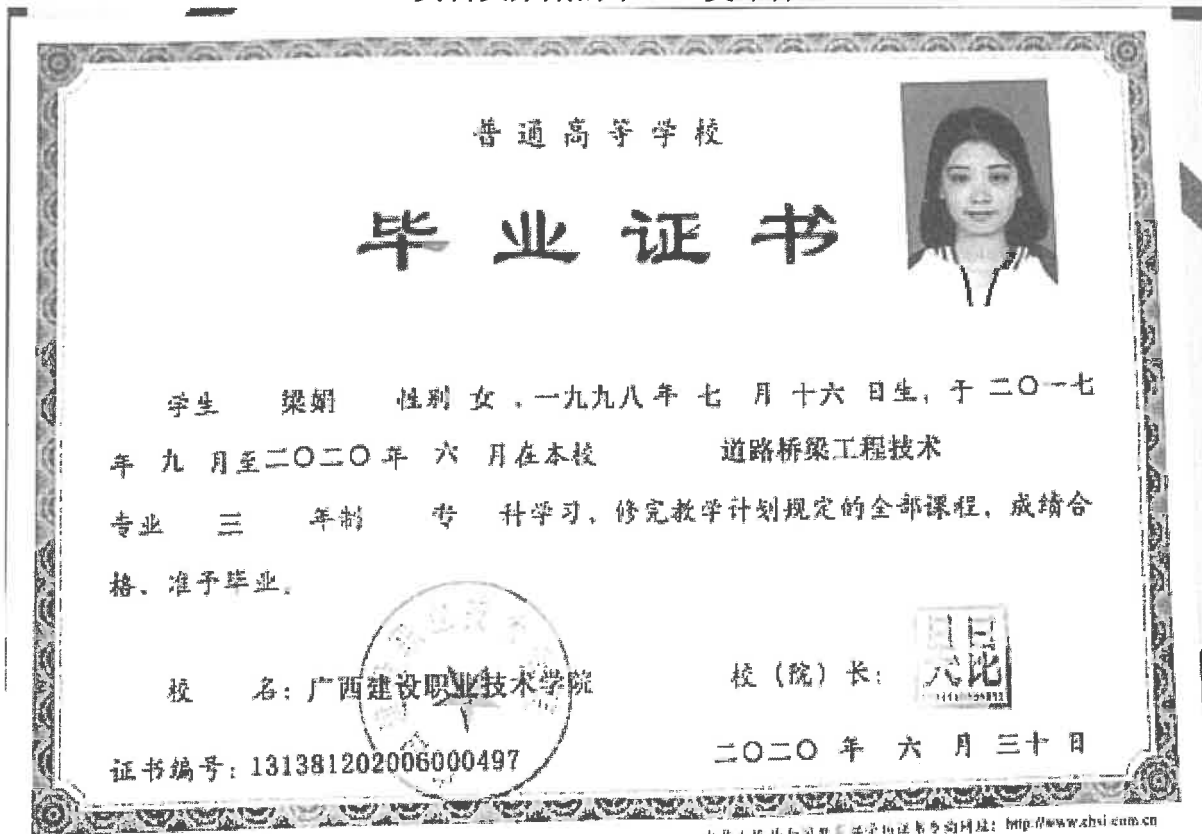 普通高等学校
毕业证书
学生 梁娟 性别 女，一九九八年 七 月 十六 日生，于 二〇一七
年 九 月至二〇二〇年 六 月在本校 道路桥梁工程技术
专业 三 年制 专 科学习，修完教学计划规定的全部课程，成绩合
格，准予毕业。
校 名：广西建设职业技术学院
校（院）长：
证书编号：131381202006000497
二〇二〇 年 六 月 三十 日
http://www.chsi.com.cn